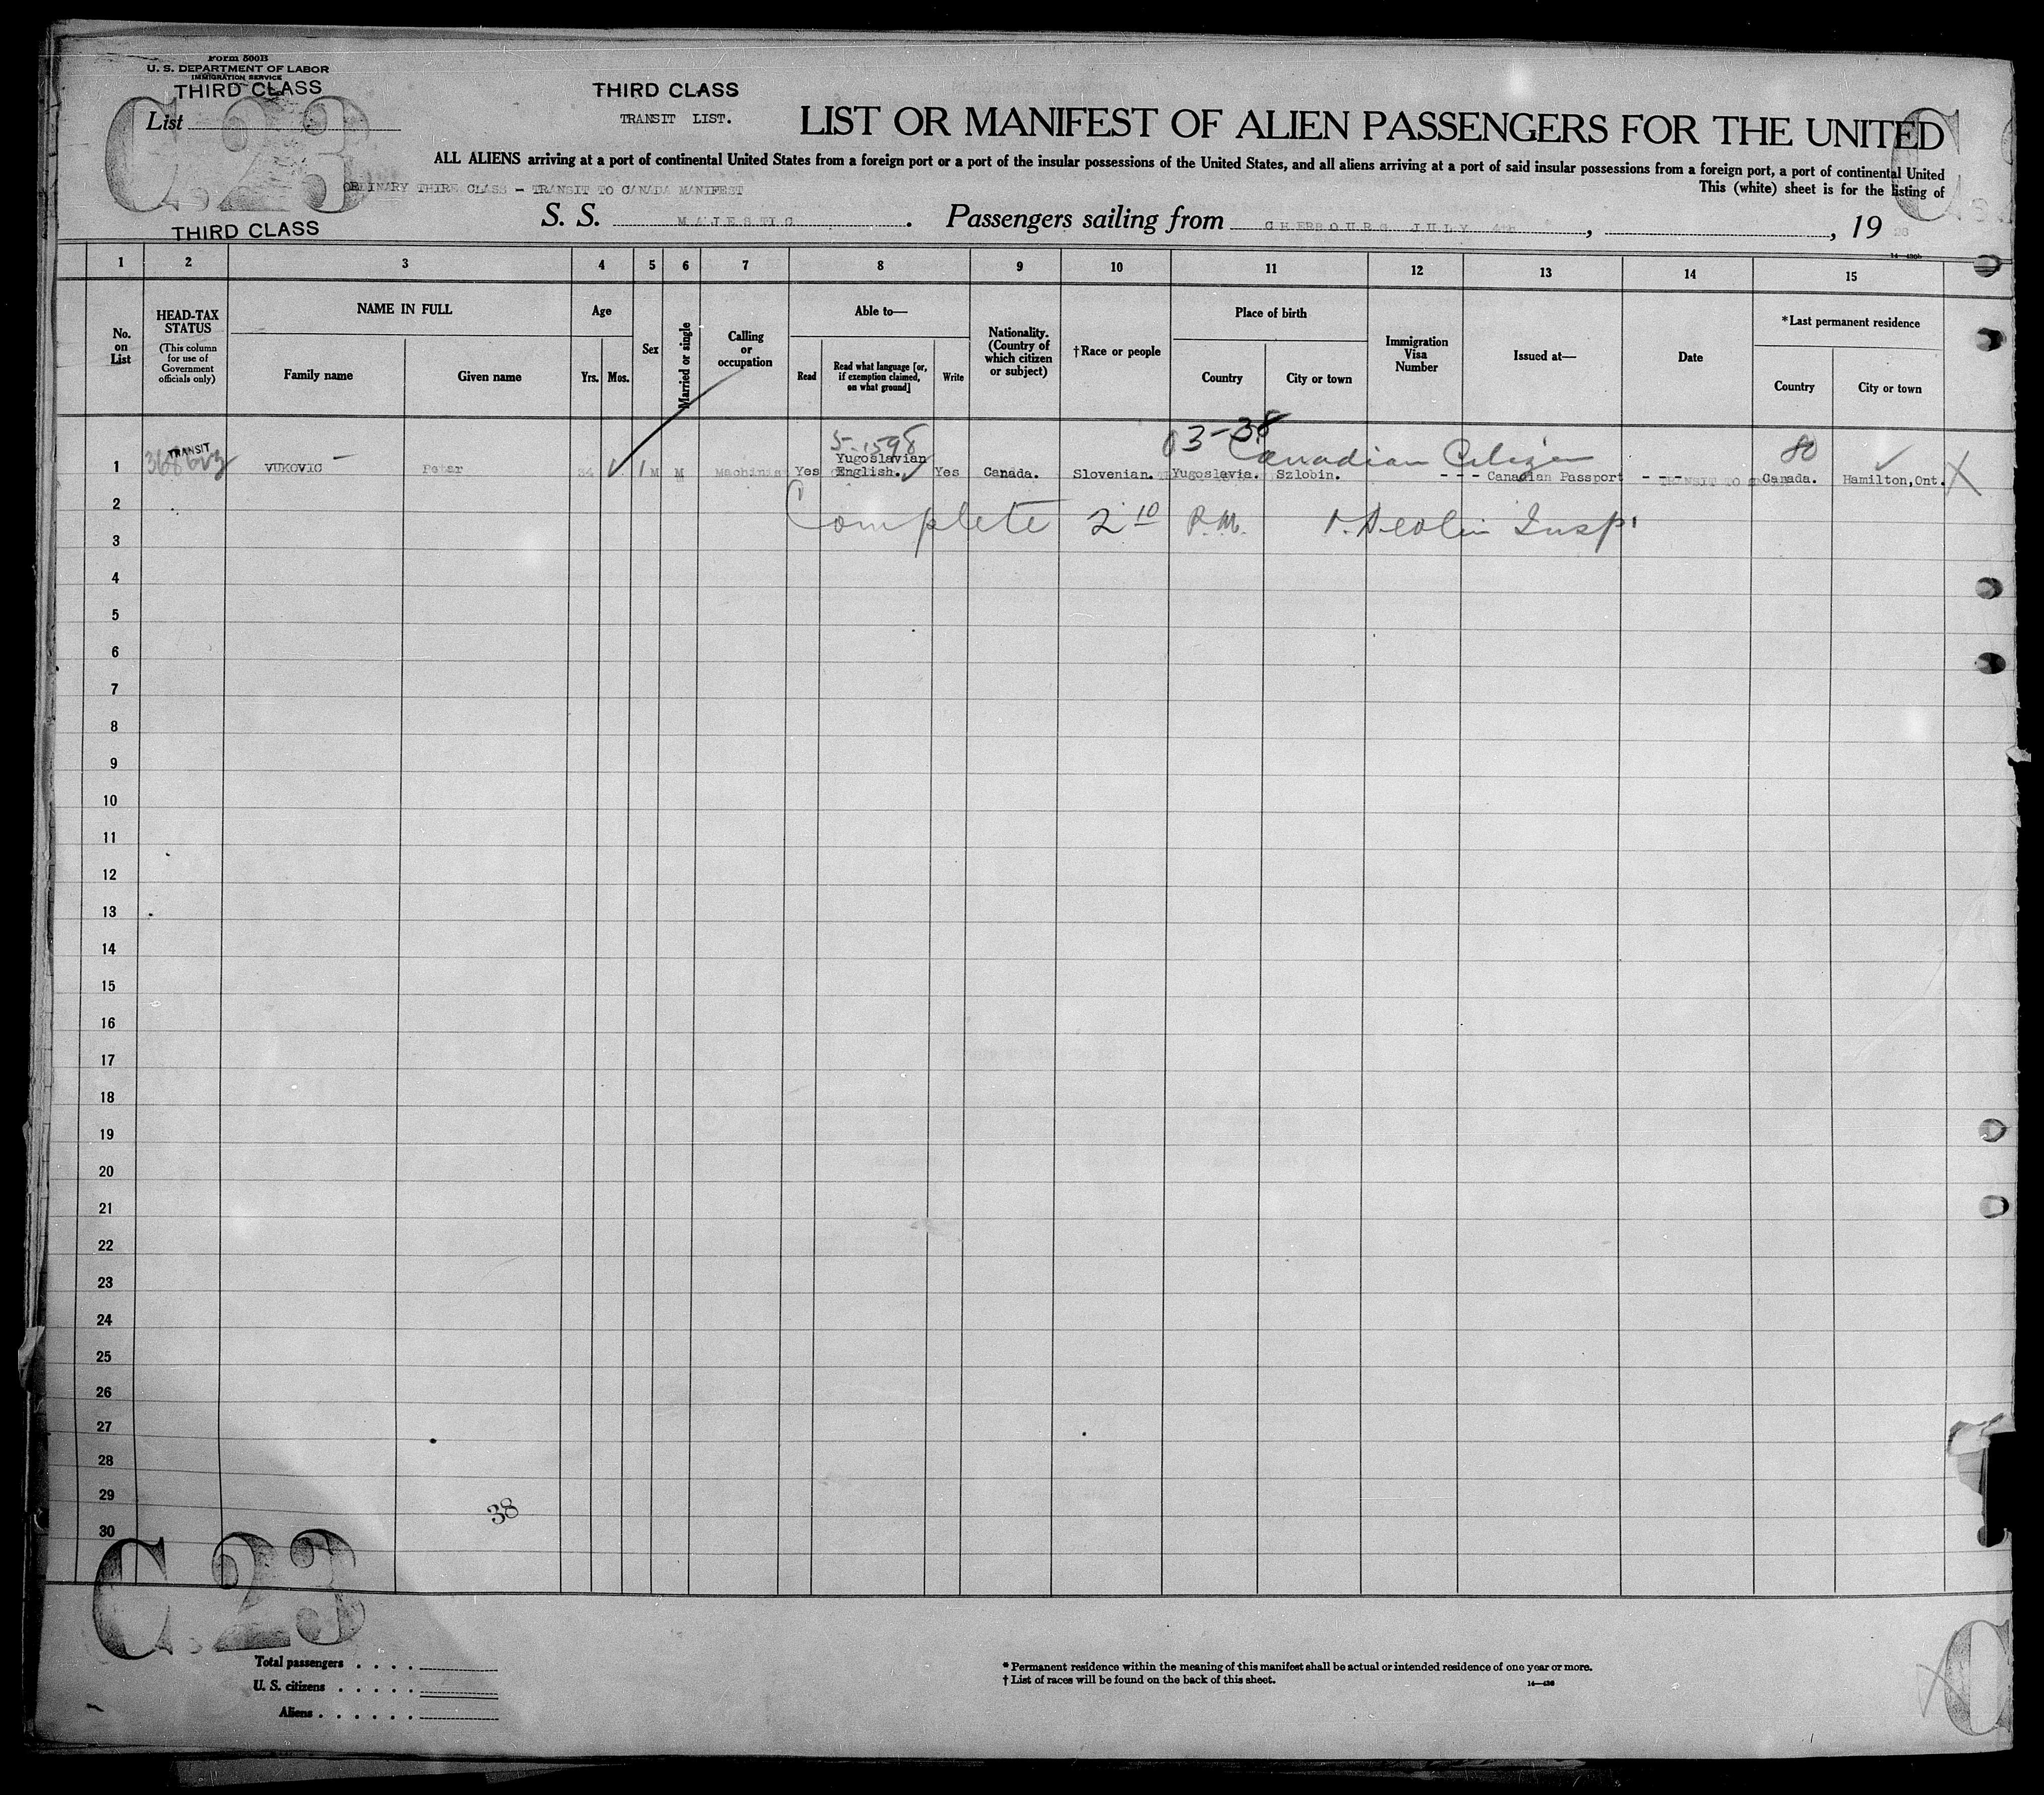 Form 500B
U. S. DEPARTMENT OF LABOR
IMMIGRATION SERVICE
THIRD CLASS
List
C.23
THIRD CLASS
TRANSIT LIST.
LIST OR MANIFEST OF ALIEN PASSENGERS FOR THE UNITED
ALL ALIENS arriving at a port of continental United States from a foreign port or a port of the insular possessions of the United States, and all aliens arriving at a port of said insular possessions from a foreign port, a port of continental United
ORDINARY THIRE CLASS - TRANSIT TO CANADA MANIFEST
This (white) sheet is for the listing of
THIRD CLASS
S. S. MAJESTIC. Passengers sailing from CHERBOURG JULY 4th, , 19 28
14—430b
1 2 3 4 5 6 7 8 9 10 11 12 13 14 15
No. on List
HEAD-TAX STATUS
(This column for use of Government officials only)
NAME IN FULL
Family name
Given name
Age
Yrs.
Mos.
Sex
Married or single
Calling or occupation
Able to—
Read
Read what language [or, if exemption claimed, on what ground]
Write
Nationality. (Country of which citizen or subject)
†Race or people
Place of birth
Country
City or town
Immigration Visa Number
Issued at—
Date
*Last permanent residence
Country
City or town
5-1598
3-38
Canadian Citizen
80
TRANSIT
1 VUKOVIC Peter 34 M M Machinist Yes Yugoslavian English. Yes Canada. Slovenian. Yugoslavia. Szlobin. - - - Canadian Passport - - - Canada. Hamilton, Ont.
2 Complete 2 10 P.M. Insp.
3
4
5
6
7
8
9
10
11
12
13
14
15
16
17
18
19
20
21
22
23
24
25
26
27
28
29
38
30
C.23
Total passengers . . . .
U. S. citizens . . . . .
Aliens . . . . . .
* Permanent residence within the meaning of this manifest shall be actual or intended residence of one year or more.
† List of races will be found on the back of this sheet.
14—430